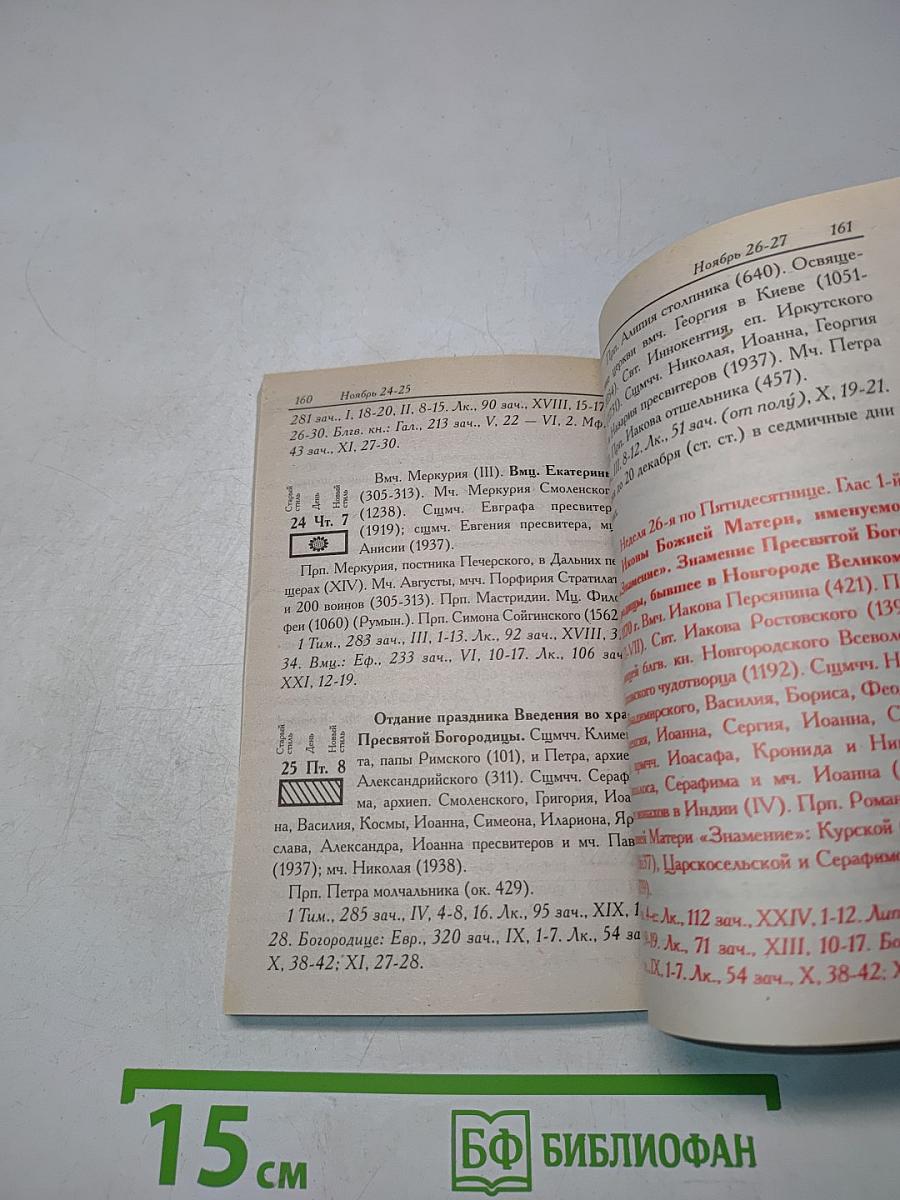 160 Ноябрь 24-25
281 зач., I, 18-20, II, 8-15. Лк., 90 зач., XVIII, 15-17
26-30. Блгв. кн.: Гал., 213 зач., V, 22 — VI, 2. Мф.
43 зач., XI, 27-30.
Старый стиль День Новый стиль
24 Чт. 7
Вмч. Меркурия (III). Вмц. Екатерин
(305-313). Мч. Меркурия Смоленског
(1238). Сщмч. Евграфа пресвитер
(1919); сщмч. Евгения пресвитера, м
Анисии (1937).
Прп. Меркурия, постника Печерского, в Дальних пе
щерах (XIV). Мч. Августы, мчч. Порфирия Стратилат
и 200 воинов (305-313). Прп. Мастридии. Мц. Фило
феи (1060) (Румын.). Прп. Симона Сойгинского (1562
1 Тим., 283 зач., III, 1-13. Лк., 92 зач., XVIII, 3
34. Вмц.: Еф., 233 зач., VI, 10-17. Лк., 106 зач
XXI, 12-19.
Старый стиль День Новый стиль
25 Пт. 8
Отдание праздника Введения во хра
Пресвятой Богородицы. Сщмчч. Климен
та, папы Римского (101), и Петра, архие
Александрийского (311). Сщмчч. Сераф
ма, архиеп. Смоленского, Григория, Иоа
на, Василия, Космы, Иоанна, Симеона, Илариона, Яр
слава, Александра, Иоанна пресвитеров и мч. Пав
(1937); мч. Николая (1938).
Прп. Петра молчальника (ок. 429).
1 Тим., 285 зач., IV, 4-8, 16. Лк., 95 зач., XIX, 1
28. Богородице: Евр., 320 зач., IX, 1-7. Лк., 54 за
X, 38-42; XI, 27-28.
Ноябрь 26-27 161
Прп. Алипия столпника (640). Освяще-
церкви вмч. Георгия в Киеве (1051-
Свт. Иннокентия, еп. Иркутского
Сщмчч. Николая, Иоанна, Георгия
Назария пресвитеров (1937). Мч. Петра
Прп. Иакова отшельника (457).
III, 8-12. Лк., 51 зач. (от полу́), X, 19-21.
до 20 декабря (ст. ст.) в седмичные дни
Неделя 26-я по Пятидесятнице. Глас 1-й
Иконы Божией Матери, именуемо
Знамение». Знамение Пресвятой Бого
бывшее в Новгороде Великом
г. Вмч. Иакова Персянина (421). П
Свт. Иакова Ростовского (139
блгв. кн. Новгородского Всевол
чудотворца (1192). Сщмчч. Н
Василия, Бориса, Фео
Иоанна, Сергия, Иоанна, С
Иоасафа, Кронида и Ни
Серафима и мч. Иоанна (
в Индии (IV). Прп. Роман
Матери «Знамение»: Курской
Царскосельской и Серафим
Лк., 112 зач., XXIV, 1-12. Лит
Лк., 71 зач., XIII, 10-17. Бо
IX, 1-7. Лк., 54 зач., X, 38-42; X
15 см
БФ БИБЛИОФАН